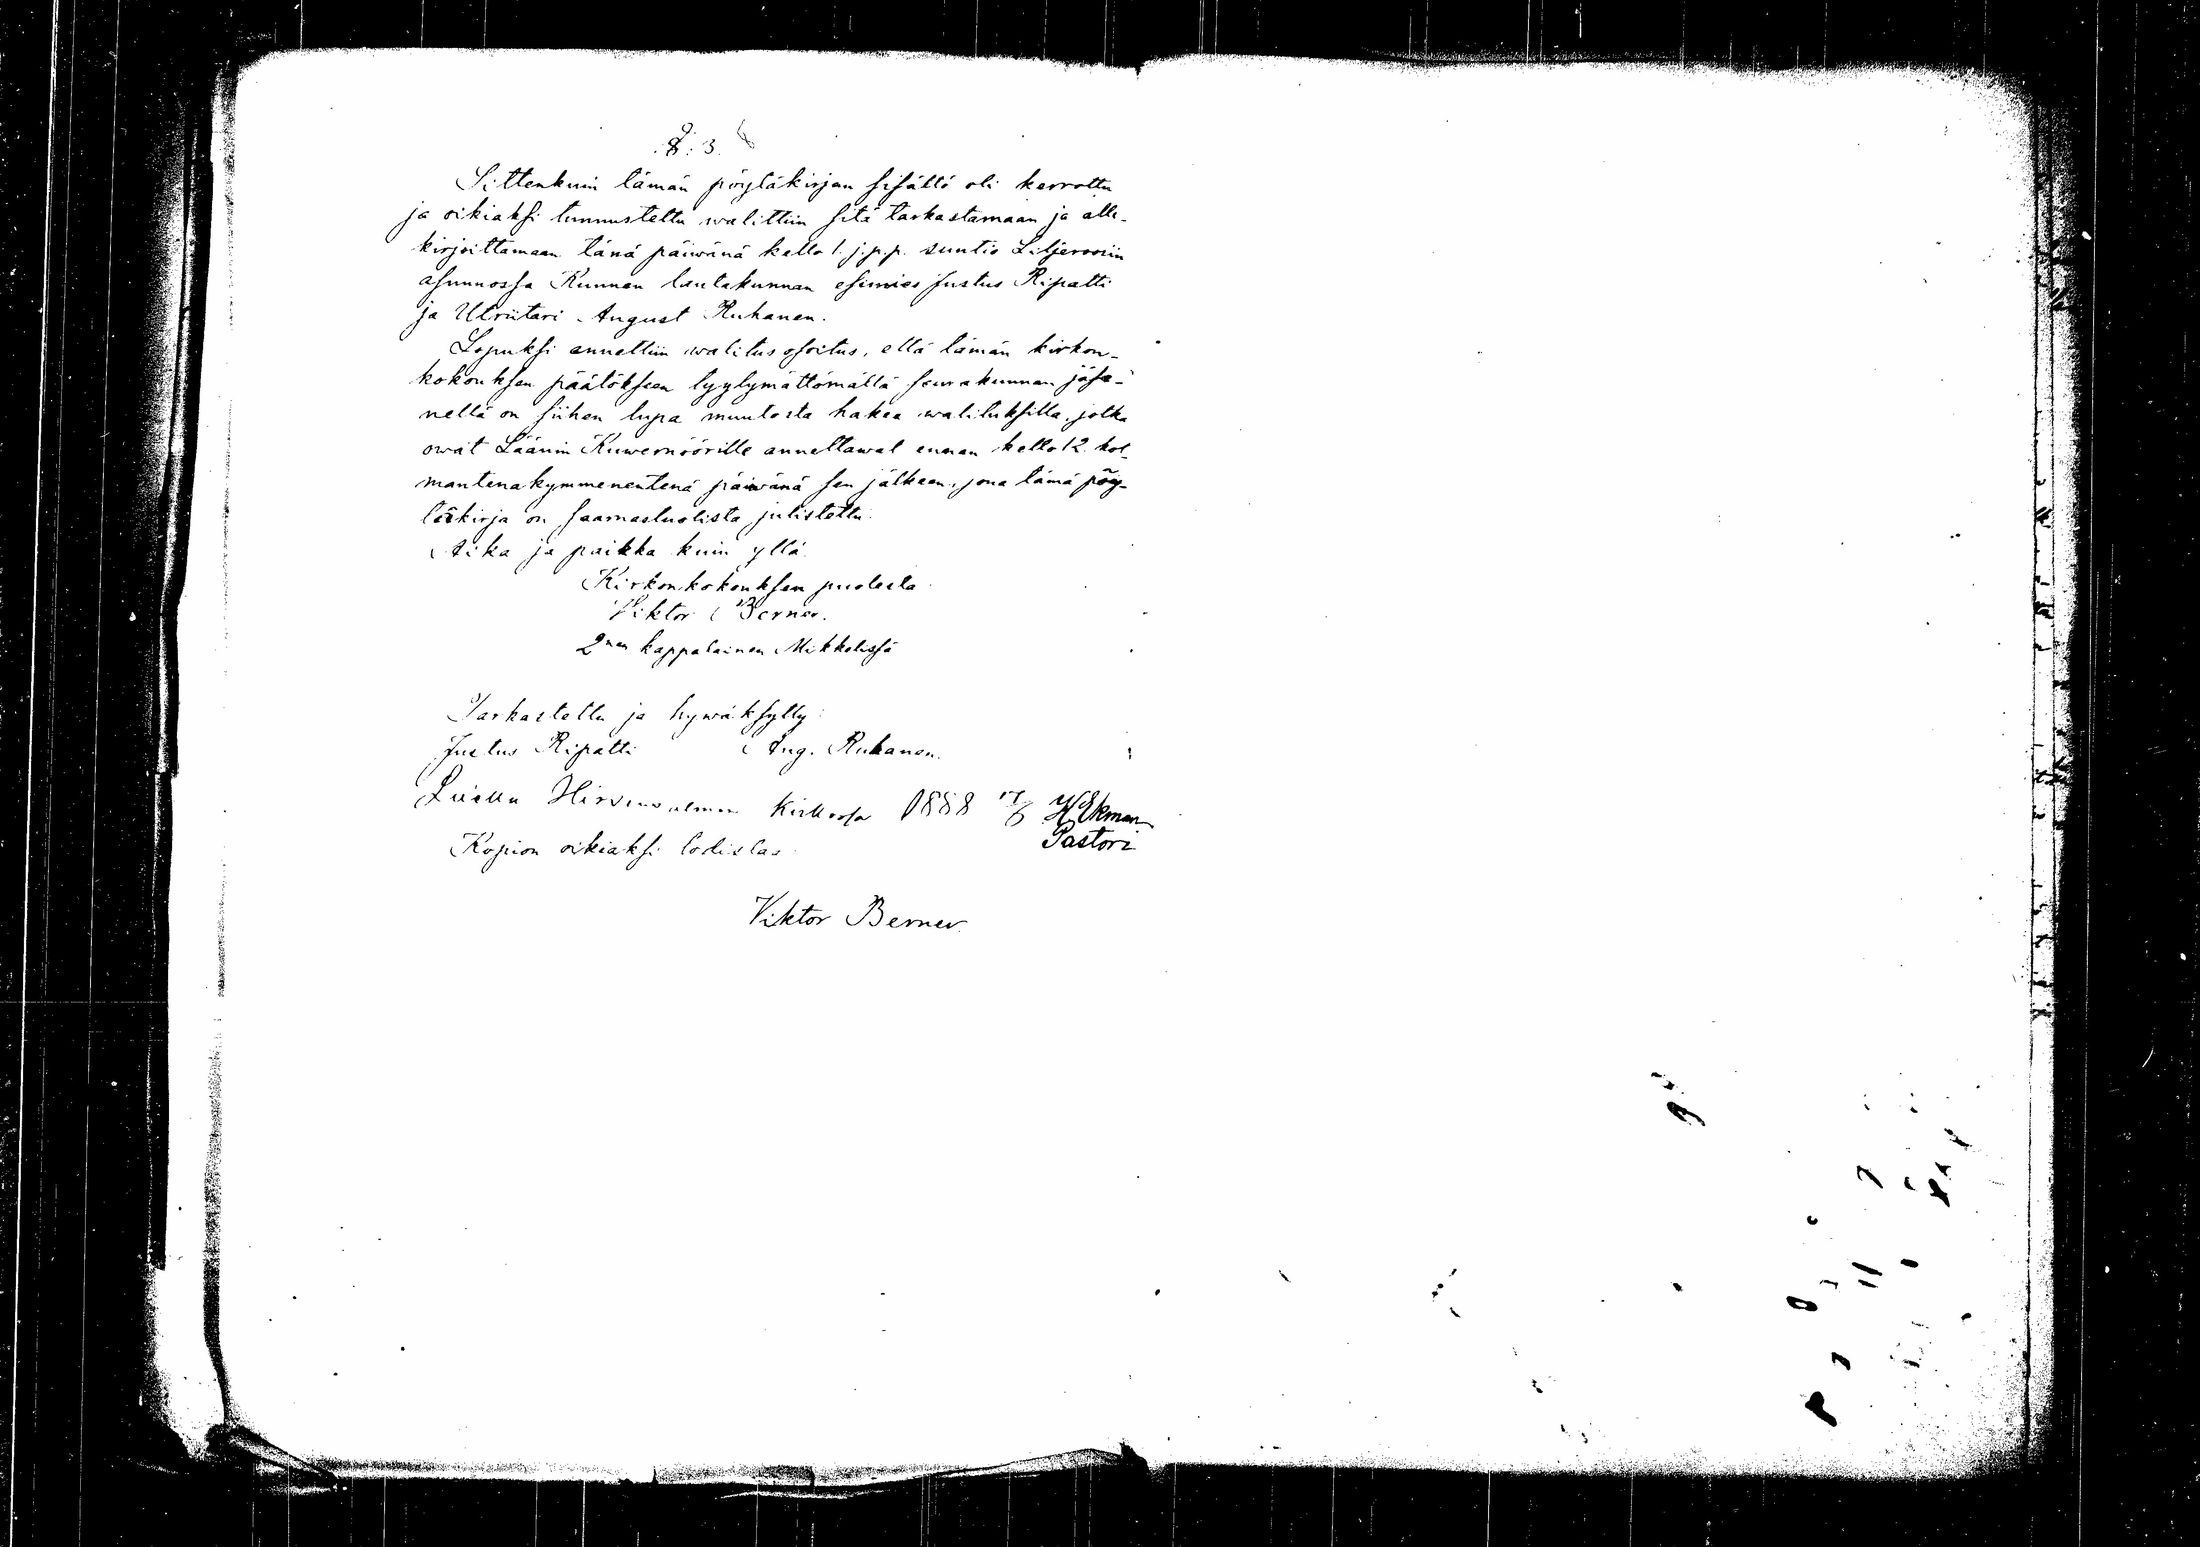 §. 3.
Sittenkuin tämän pöytäkirjan sisältö oli kerrottu
ja oikiaksi tunnustettu walittiin sitä tarkastamaan ja alle-
kirjoittamaan tänä päiwänä kello 1. j.p.p. suntio Liljeroosin
asunnossa Kunnan lautakunnan esimies Justus Ripatti
ja Utriitari August Ruhanen.
Lopuksi annettiin walitusosoitus, että tämän kirkon-
kokouksen päätökseen tyytymättömällä seurakunnan jäse-
nellä on siihen lupa muutosta hakea walituksilla, jotka
owat Läänin Kuwernöörille annettawat ennen kello 12 kol-
mantenakymmenentenä päiwänä sen jälkeen, jona tämä pöy-
täkirja on saarnastuolista julistettu.
Aika ja paikka kuin yllä.
Kirkonkokouksen puolesta
Viktor Berner.
2nen kappalainen Mikkelissä
Tarkastettu ja hywäksytty:
Justus Ripatti Aug. Ruhanen.
Luettu Hirvensalmen kirkossa 1888 17/6 H Ekman
Pastori
Kopion oikiaksi todistaa
Viktor Berner